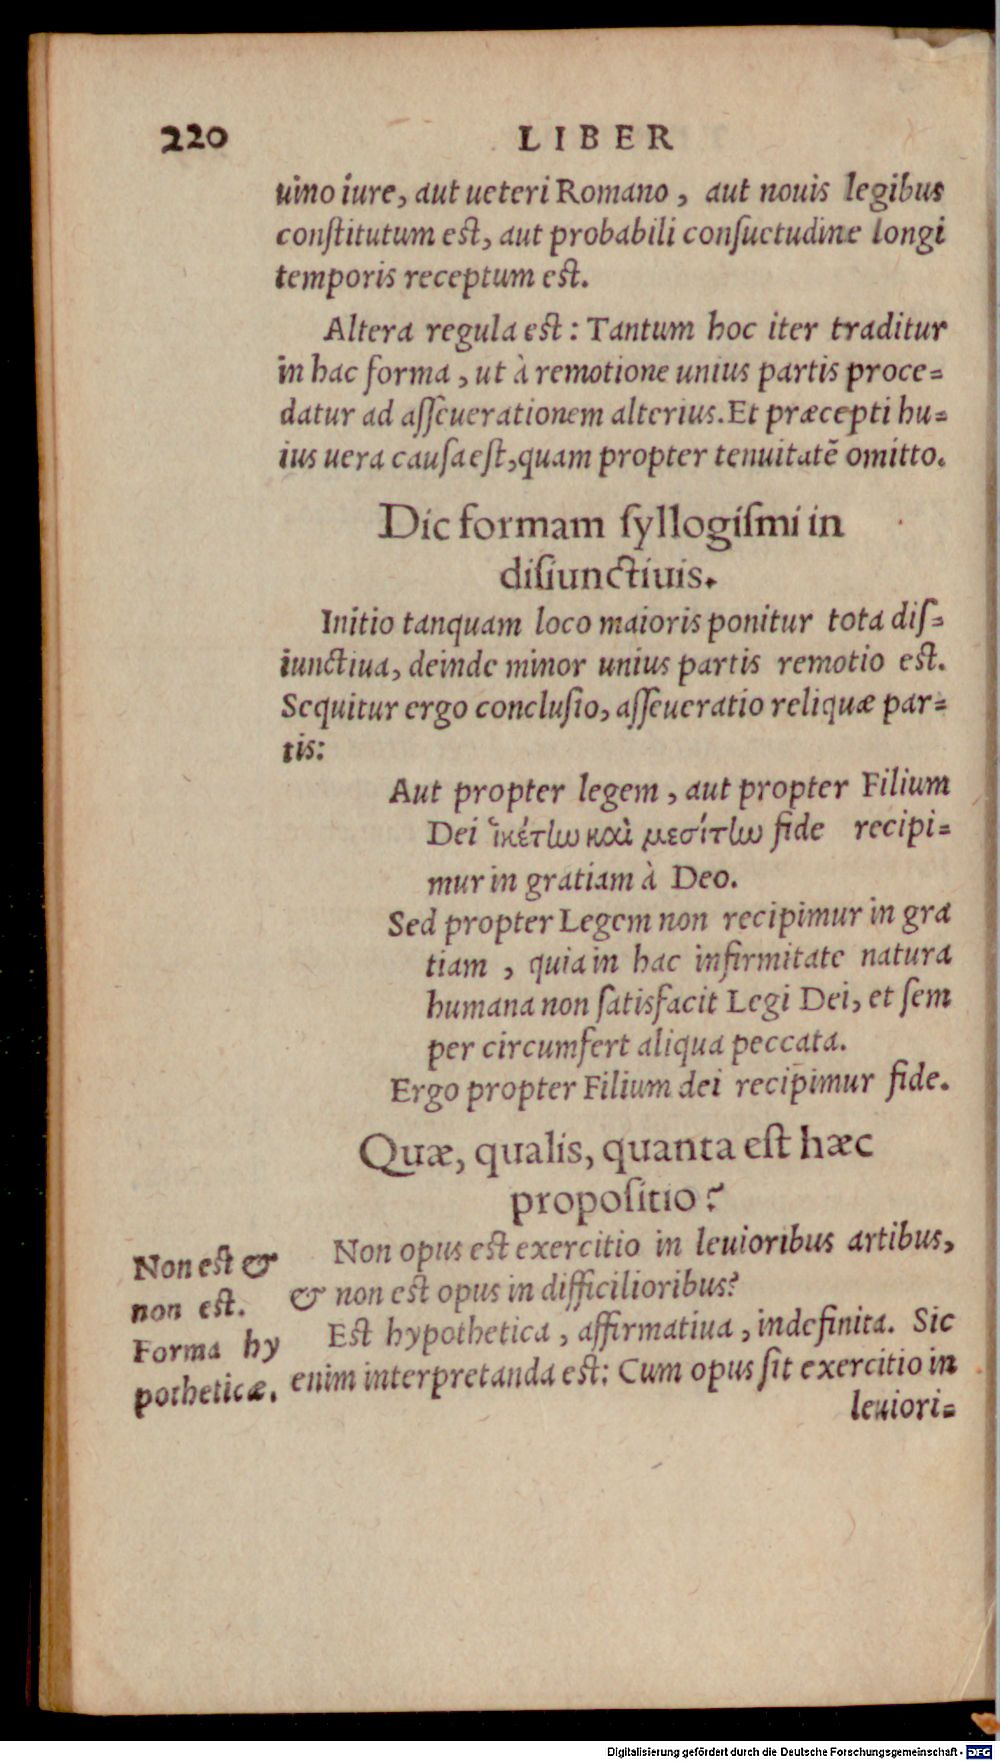 220 LIBER
uino iure, aut ueteri Romano, aut nouis legibus
constitutum est, aut probabili consuetudine longi
temporis receptum est.
Altera regula est: Tantum hoc iter traditur
in hac forma, ut à remotione unius partis proce=
datur ad asseuerationem alterius. Et præcepti hu=
ius uera causa est, quam propter tenuitatē omitto.
Dic formam syllogismi in
disiunctiuis.
Initio tanquam loco maioris ponitur tota dis=
iunctiua, deinde minor unius partis remotio est.
Sequitur ergo conclusio, asseueratio reliquæ par=
tis:
Aut propter legem, aut propter Filium
Dei ἱκέτην καὶ μεσίτην fide recipi=
mur in gratiam à Deo.
Sed propter Legem non recipimur in gra
tiam, quia in hac infirmitate natura
humana non satisfacit Legi Dei, et sem
per circumfert aliqua peccata.
Ergo propter Filium dei recipimur fide.
Quæ, qualis, quanta est hæc
propositio?
Non opus est exercitio in leuioribus artibus,
& non est opus in difficilioribus?
Est hypothetica, affirmatiua, indefinita. Sic
enim interpretanda est: Cum opus sit exercitio in
leuiori=
Non est &
non est.
Forma hy
potheticæ.
Digitalisierung gefördert durch die Deutsche Forschungsgemeinschaft - DFG